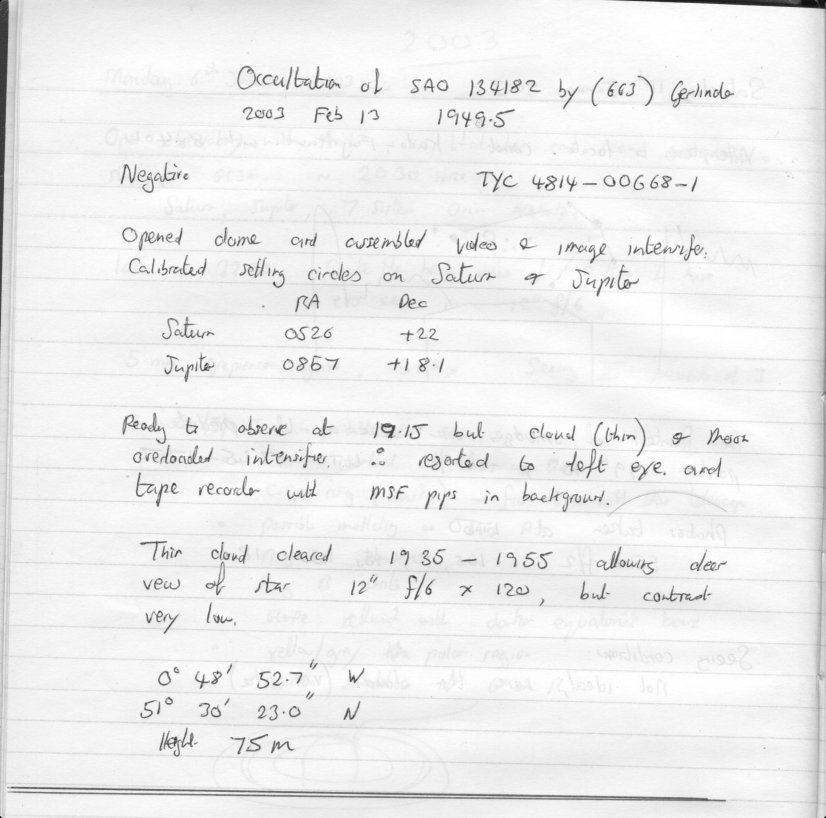 Occultation of SAO 134182 by (663) Gerlinde
2003 Feb 13 1949.5
Negative TYC 4814-00668-1
Opened dome and assembled video & image intensifier.
Calibrated setting circles on Saturn & Jupiter
RA Dec
Saturn 0526 +22
Jupiter 0857 +18.1
Ready to observe at 19.15 but cloud (thin) & Moon
overloaded intensifier. ∴ resorted to left eye and
tape recorder with MSF pips in background.
Thin cloud cleared 1935 – 1955 allowing clear
view of star 12" f/6 x 120, but contrast
very low.
0° 48' 52.7" W
51° 30' 23.0" N
Height 75m